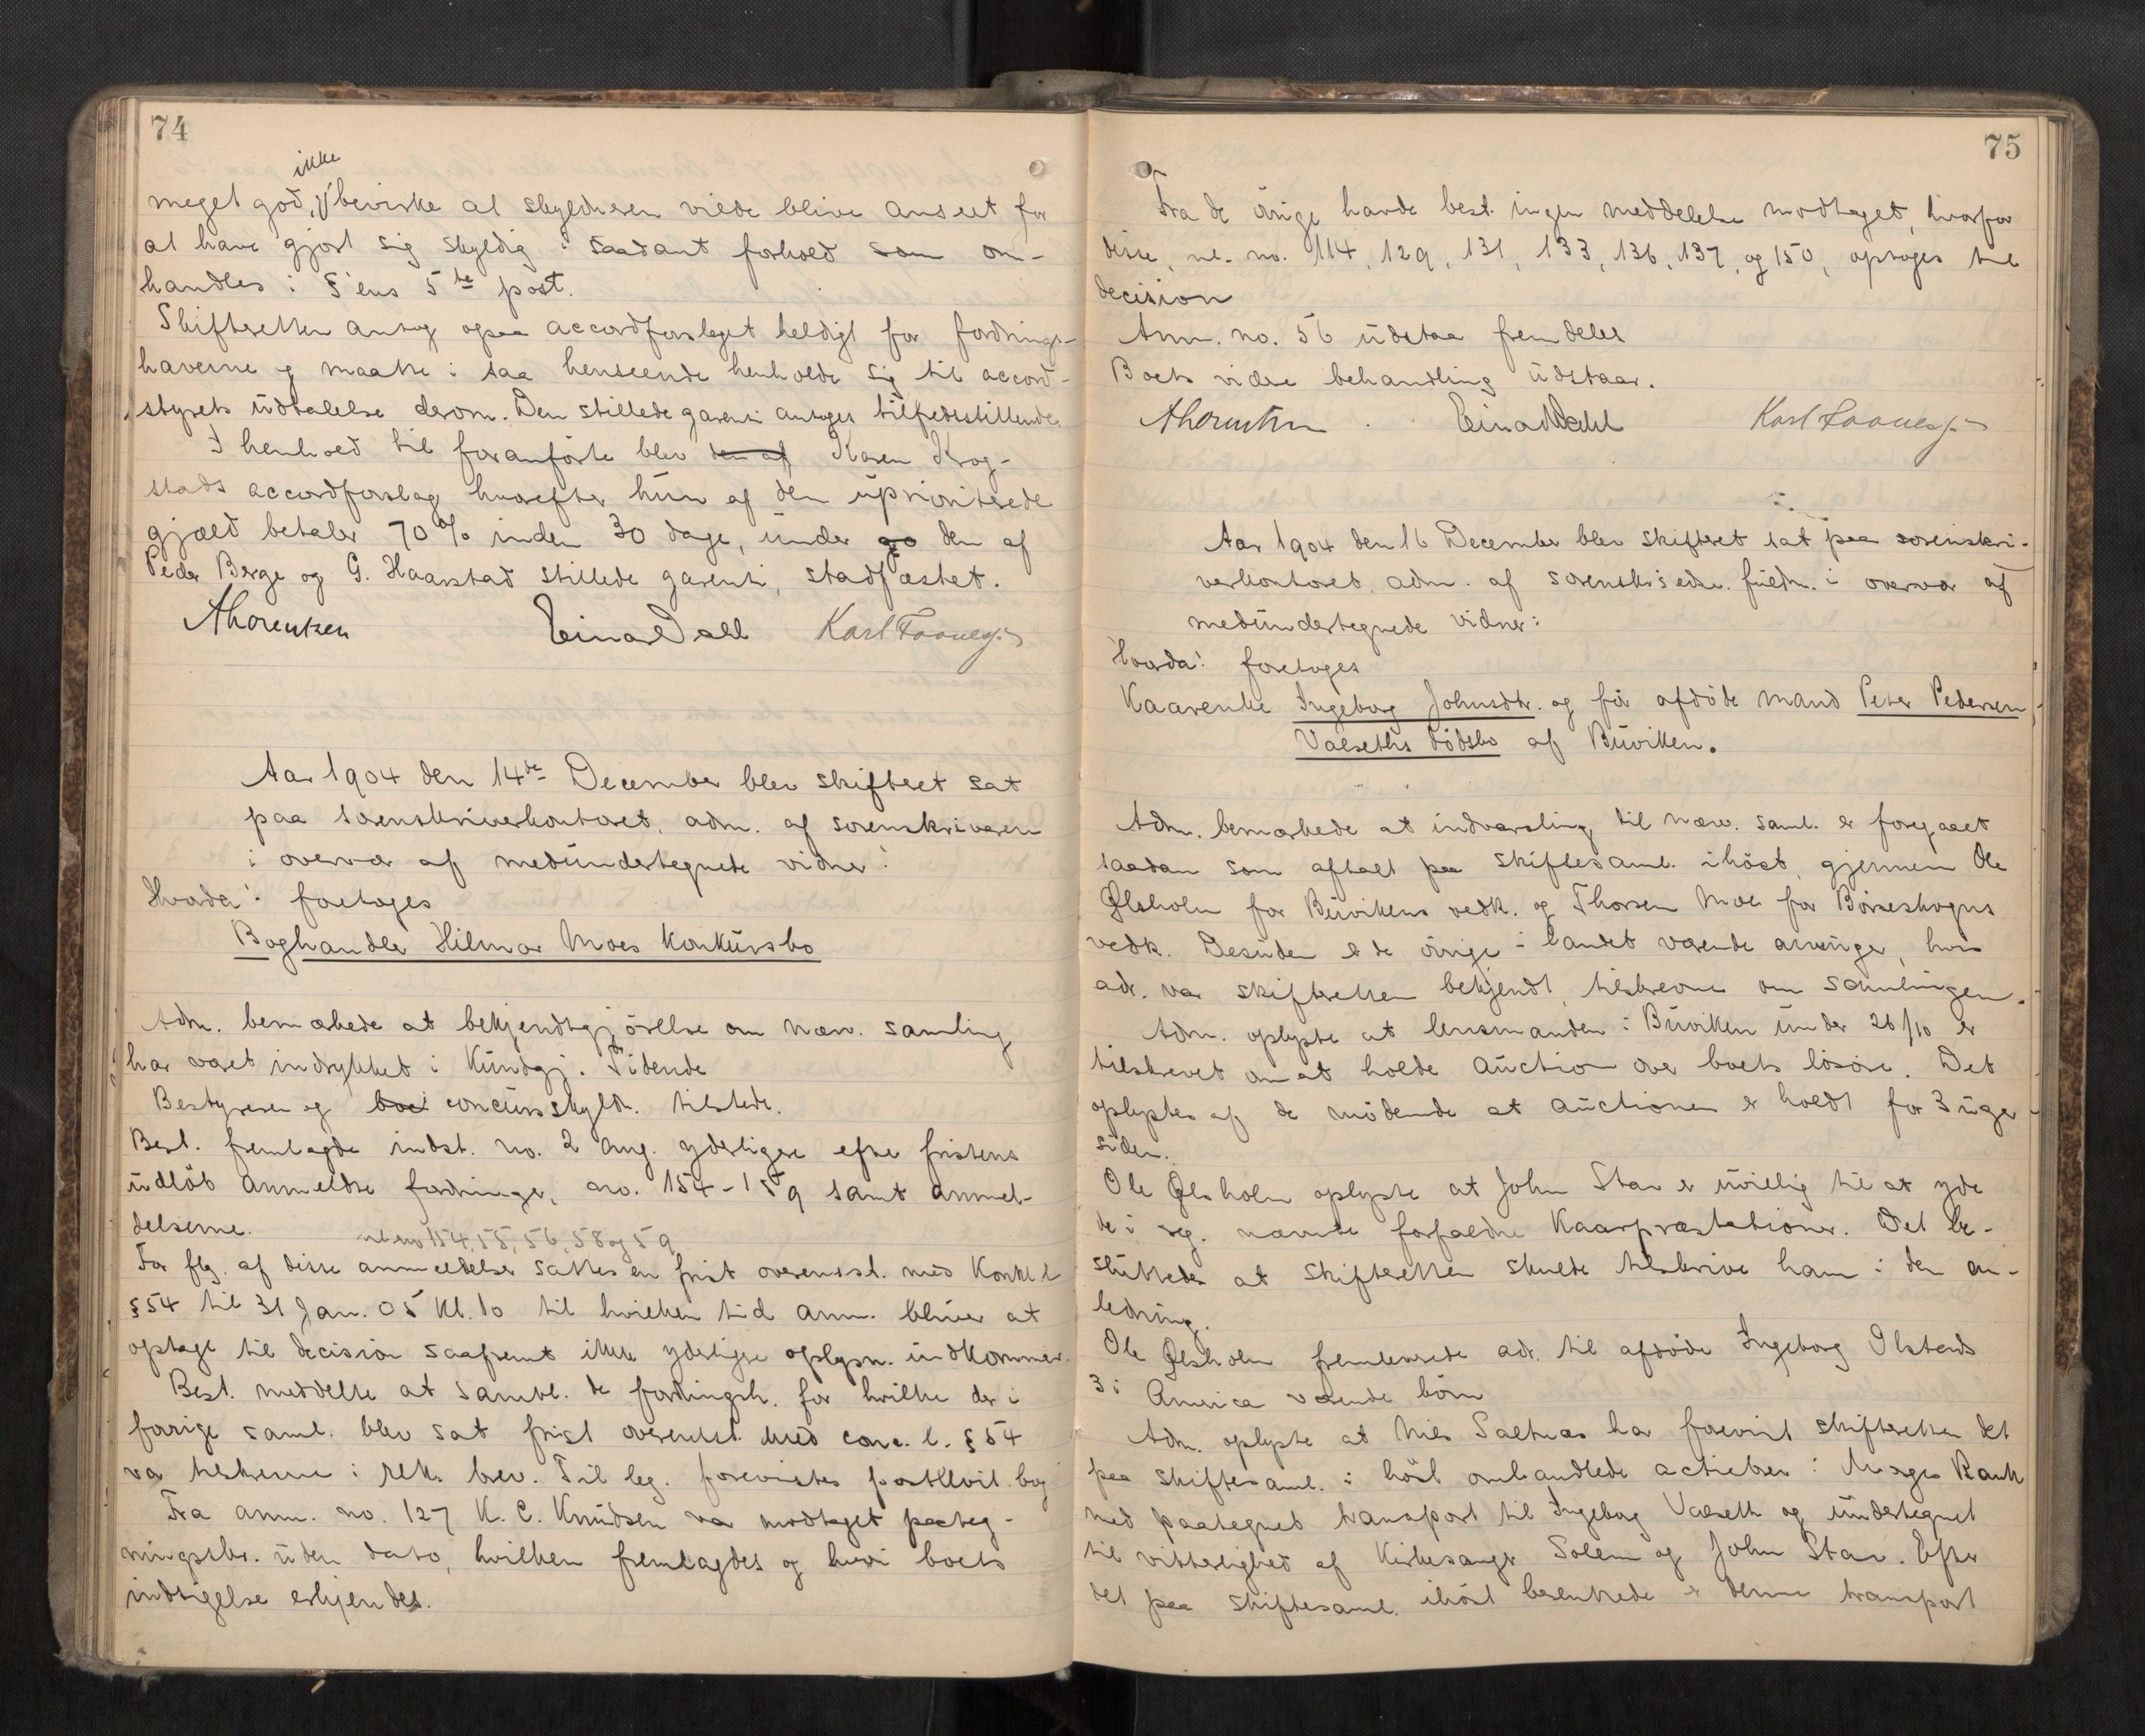 74
ikke
meget god, bevirke at skyldneren vilde blive anseet for
at have gjort sig skyldig i saadant forhold som om-
handles i §'ens 5te post.
Skifteretten antog ogsaa accordforslaget heldigt for fordrings-
haverne og maatte i saa henseende henholde sig til accord-
styrets udtalelse derom. Den stillede garanti antages tilfredsstillende
I henhold til foranførte blev den af Karen Krog-
stads accordforslag hvorefter hun af den uprioriterede
gjæld betaler 70% inden 30 dage, under go den af
Peder Berge og G. Haarstad stillede garanti, stadfæstet.
AThorentzen Einar Dahl Karl Foo
Aar 1904 den 14de December blev skifteret sat
paa sorenskriverkontoret, adm. af sorenskriveren
i overvær af medundertegnede vidner:
Hvorda: foretoges
Boghandler Hilmar Moes Konkursbo
Adm. bemærkede at bekjendtgjørelse om nærv. samling
har været indrykket i Kundgj. Tidende
Bestyreren og boet concursskyldn. tilstede.
Best. fremlagde indst. no. 2 ang. yderligere efter fristens
udløb anmeldte fordringer, no. 154-159 samt anmel-
delserne.
nl. no 154, 55, 56, 58 og 59
For flg. af disse anmeldelser sattes en frist overensst. med Konk l
§ 54 til 31 Jan. 05 kl. 10 til hvilken tid anm. bliver at
optage til decision saafremt ikke yderligere oplysn. indkommer.
Best. meddelte at samtl. de fordringsh. for hvilke der i
forrige saml. blev sat frist overensst. med conc. l. § 54
var tilskrevne i rek. brev. Til leg. forevistes postkvit. bog
Fra anm. no. 127 K. C. Knudsen var modtaget paateg-
ningsskr. uden dato, hvilken fremlagdes og hvori boets
indsigelse erkjendes.
75
Fra de øvrige havde best. ingen meddelelse modtaget, hvorfor
disse, nl. no. 114, 129, 131, 133, 136, 137, og 150, optoges til
decision
Anm. no. 56 udstaa fremdeles
Boets videre behandling udstaar.
AThorentzen Einar Dahl Karl Foo
Aar 1904 den 16 December blev skifteret sat paa sorenskri-
verkontoret, adm. af sorenskr.s edsv. fuldm. i overvær af
medundertegnede vidner:
Hvorda: foretoges
Kaarenke Ingeborg Johnsdtr. og før afdøde mand Peter Pedersen
Valseths dødsbo af Buviken.
Adm. bemærkede at indvarsling til nærv. saml. er foregaaet
saadan som aftalt paa skiftesaml. ihøst, gjennem Ole
Ølsholm for Buvikens vedk. og Thorsen Moe for Børseskogns
vedk. Desuden er de øvrige i landet værende arvinger, hvis
adr. var skifteretten bekjendt, tilskrevne om samlingen.
Adm. oplyste at lensmanden i Buviken under 26/10 er
tilskrevet om at holde auction over boets løsøre. Det
oplystes af de mødende at auctionen er holdt for 3 uger
siden.
Ole Ølsholm oplyste at John Stav er uvillig til at yde
de i reg. nævnte forfaldne Kaarpræstationer. Det be-
sluttedes at skifteretten skulde tilskrive ham i den an-
ledning.
Ole Ølsholm fremleverede adr. til afdøde Ingeborg Olstads
3 i America værende børn
Adm. oplyste at Nils Saltnes har forevist skifteretten det
paa skiftesaml. i høst omhandlede actiebrev i Norges Bank
med paategnet transport til Ingeborg Valseth og undertegnet
til vitterlighed af Kirkesanger Solem og John Stav. Efter
det paa skiftesaml. ihøst besluttede er denne transport